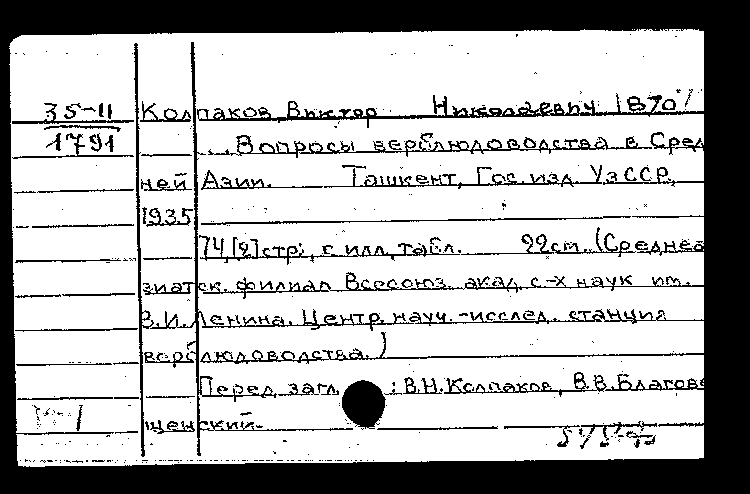 35-11
1791
Колпаков, Виктор Николаевич 1870
...Вопросы верблюдоводства в Сред
ней Азии. Ташкент, Гос. изд. УзССР,
1935
74,[2]стр; с илл, табл. 22см. (Среднеа
зиатск. филиал Всесоюз. акад. с-х наук им.
В.И. Ленина. Центр. науч.-исслед. станция
верблюдоводства.)
Перед загл. : В.Н.Колпаков, В.В.Благове
щенский.